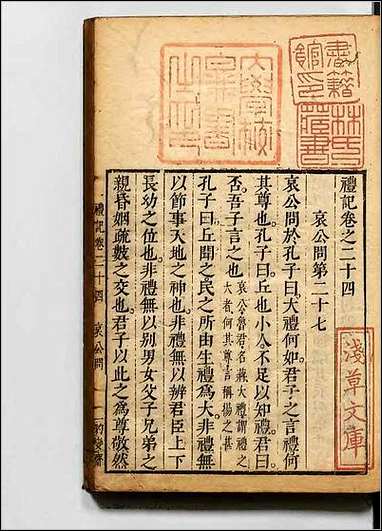 禮記卷之二十四
哀公問第二十七
哀公問於孔子曰大禮何如君子之言禮何
其尊也孔子曰丘也小人不足以知禮君曰
否吾子言之也哀公魯君名蔣大禮謂禮之
大者何其尊言稱揚之甚
孔子曰丘聞之民之所由生禮為大非禮無
以節事天地之神也非禮無以辨君臣上下
長幼之位也非禮無以別男女父子兄弟之
親昏姻疏數之交也君子以此之為尊敬然
禮記卷二十四 哀公問 一
淺草文庫
書籍館印
林氏藏書